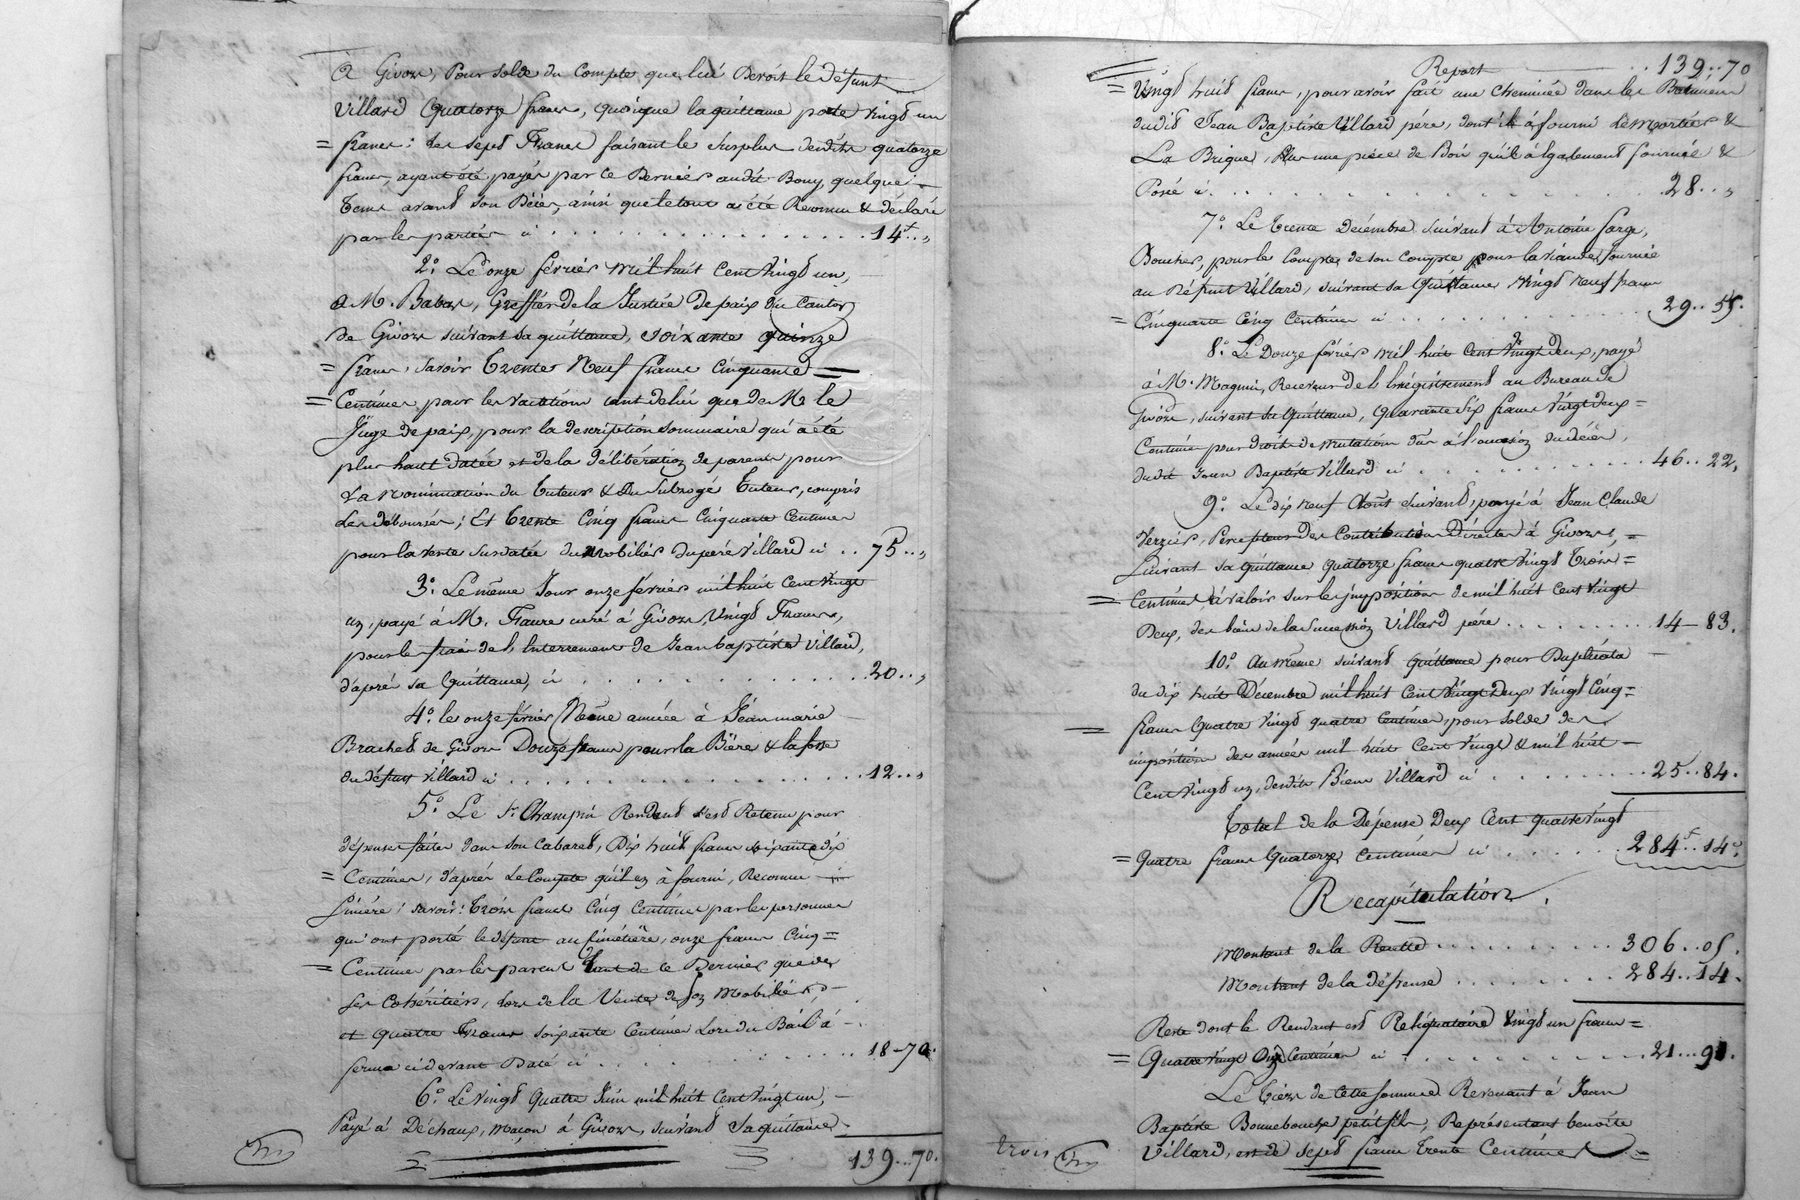 à Givors, Pour solde du Compte que lui Devoit le défunt
Villard Quatorze francs, quoique la quittance porte vingt un
= francs; les sept Francs faisant le surplus desdits quatorze
francs, ayant été payés par ce Dernier audit Bouy, quelque -
tems avant son Décès, ainsi que le tout a été Reconnu & déclaré
par les parties ci . . . . . . . . . . . . 14f..„
2.° Le onze février mil huit Cent Vingt un,
à M. Babas, Greffier de la Justice De paix du Canton
de Givors suivant sa quittance, soixante quinze
= francs, savoir Trente Neuf francs Cinquante =
= Centimes pour les vacations tant de lui que de M. le
Juge de paix, pour la description sommaire qui a été
plus haut datée et de la délibération de parents pour
La nomination du Tuteur & du Subrogé Tuteur, compris
les déboursés; Et Trente Cinq francs Cinquante Centimes
pour la vente susdatée du Mobilier du père Villard ci .. 75..„
3.° Le même Jour onze février mil huit Cent Vingt
un, payé à M. Faure curé à Givors, Vingt Francs,
pour les frais de l'Enterrement de Jean baptiste Villard,
d'après sa Quittance, ci . . . . . . . . . . 20..„
4.° le onze février Même année à Jean marie
Brachet de Givors Douze francs pour la Bière & la fosse
du défunt Villard ci . . . . . . . . . . . . 12..„
5.° Le S.r Champin Rendant s'est Retenu pour
dépenses faites dans son Cabaret, Dix huit francs soixante dix
= Centimes, d'après Le Compte qu'il en a fourni, Reconnu -
Sincère; savoir: Trois francs Cinq Centimes par les personnes
qui ont porté le défunt au Cimétière, onze francs Cinq =
= Centimes par les parents tant de ce Dernier que de
ses Cohéritiers, lors de la Vente de son Mobilier, -
et Quatre Francs soixante Centimes Lors du Bail à -
ferme ci devant Daté ci . . . . . . . . . . 18-70.
6.° Le Vingt Quatre Juin mil huit Cent Vingt un, -
Payé à Déchaux, Maçon à Givors, suivant sa quittance
139..70.
Report . . 139..70
= Vingt huit francs, pour avoir fait une Cheminée dans les Batimens
dudit Jean Baptiste Villard père, dont il a fourni le mortier &
La Brique, Plus une pièce de Bois qu'il a également fournie &
Posée ci . . . . . . . . . . . . 28..„
7.° Le Trente Décembre suivant à Antoine Farge,
Boucher, pour le Compte de son Compte pour la Viande fournie
au Défunt Villard, suivant sa Quittance Vingt neuf francs
= Cinquante Cinq Centimes ci . . . . . . . . . . 29..55.
8.° Le Douze février mil huit Cent Vingt Deux, payé
à M. Magnin, Receveur de l'Enrégistrement au Bureau de
Givors, suivant sa Quittance, Quarante Six francs Vingt deux =
Centimes pour Droits de Mutation dûs à l'occasion du décès,
dudit Jean Baptiste Villard ci . . . . . . . . . . 46..22.
9.° Le dix neuf Août suivant, payé à Jean Claude
Verzier, Percepteur des Contributions Directes à Givors, =
Suivant sa Quittance quatorze francs quatre Vingt Trois =
= Centimes à valoir sur les impositions de mil huit Cent Vingt
Deux, des biens de la Succession Villard père . . . . . . . . 14-83.
10.° Au même suivant quittance pour Duplicata -
du dix huit Décembre mil huit Cent Vingt Deux Vingt Cinq =
= francs Quatre Vingt quatre Centimes, pour solde des
impositions des années mil huit Cent Vingt & mil huit -
Cent Vingt un, desdits Biens Villard ci . . . . . . . . . . 25..84.
Total de la Dépense Deux Cent quatre Vingt
= Quatre francs Quatorze Centimes ci . . . . . . 284f..14c
Recapitulation.
Montant de la Recette . . . . . . . . . . 306..05.
Montant de la dépense . . . . . . . . . . 284..14.
Reste dont le Rendant est Reliquataire Vingt un francs =
= Quatre Vingt Onze Centimes ci . . . . . . . . . . 21...91.
Le Tiers de Cette Somme Revenant à Jean
Baptiste Bonnebouche petit fils, Représentant benoite
Villard, est de sept francs Trente Centimes =
trois